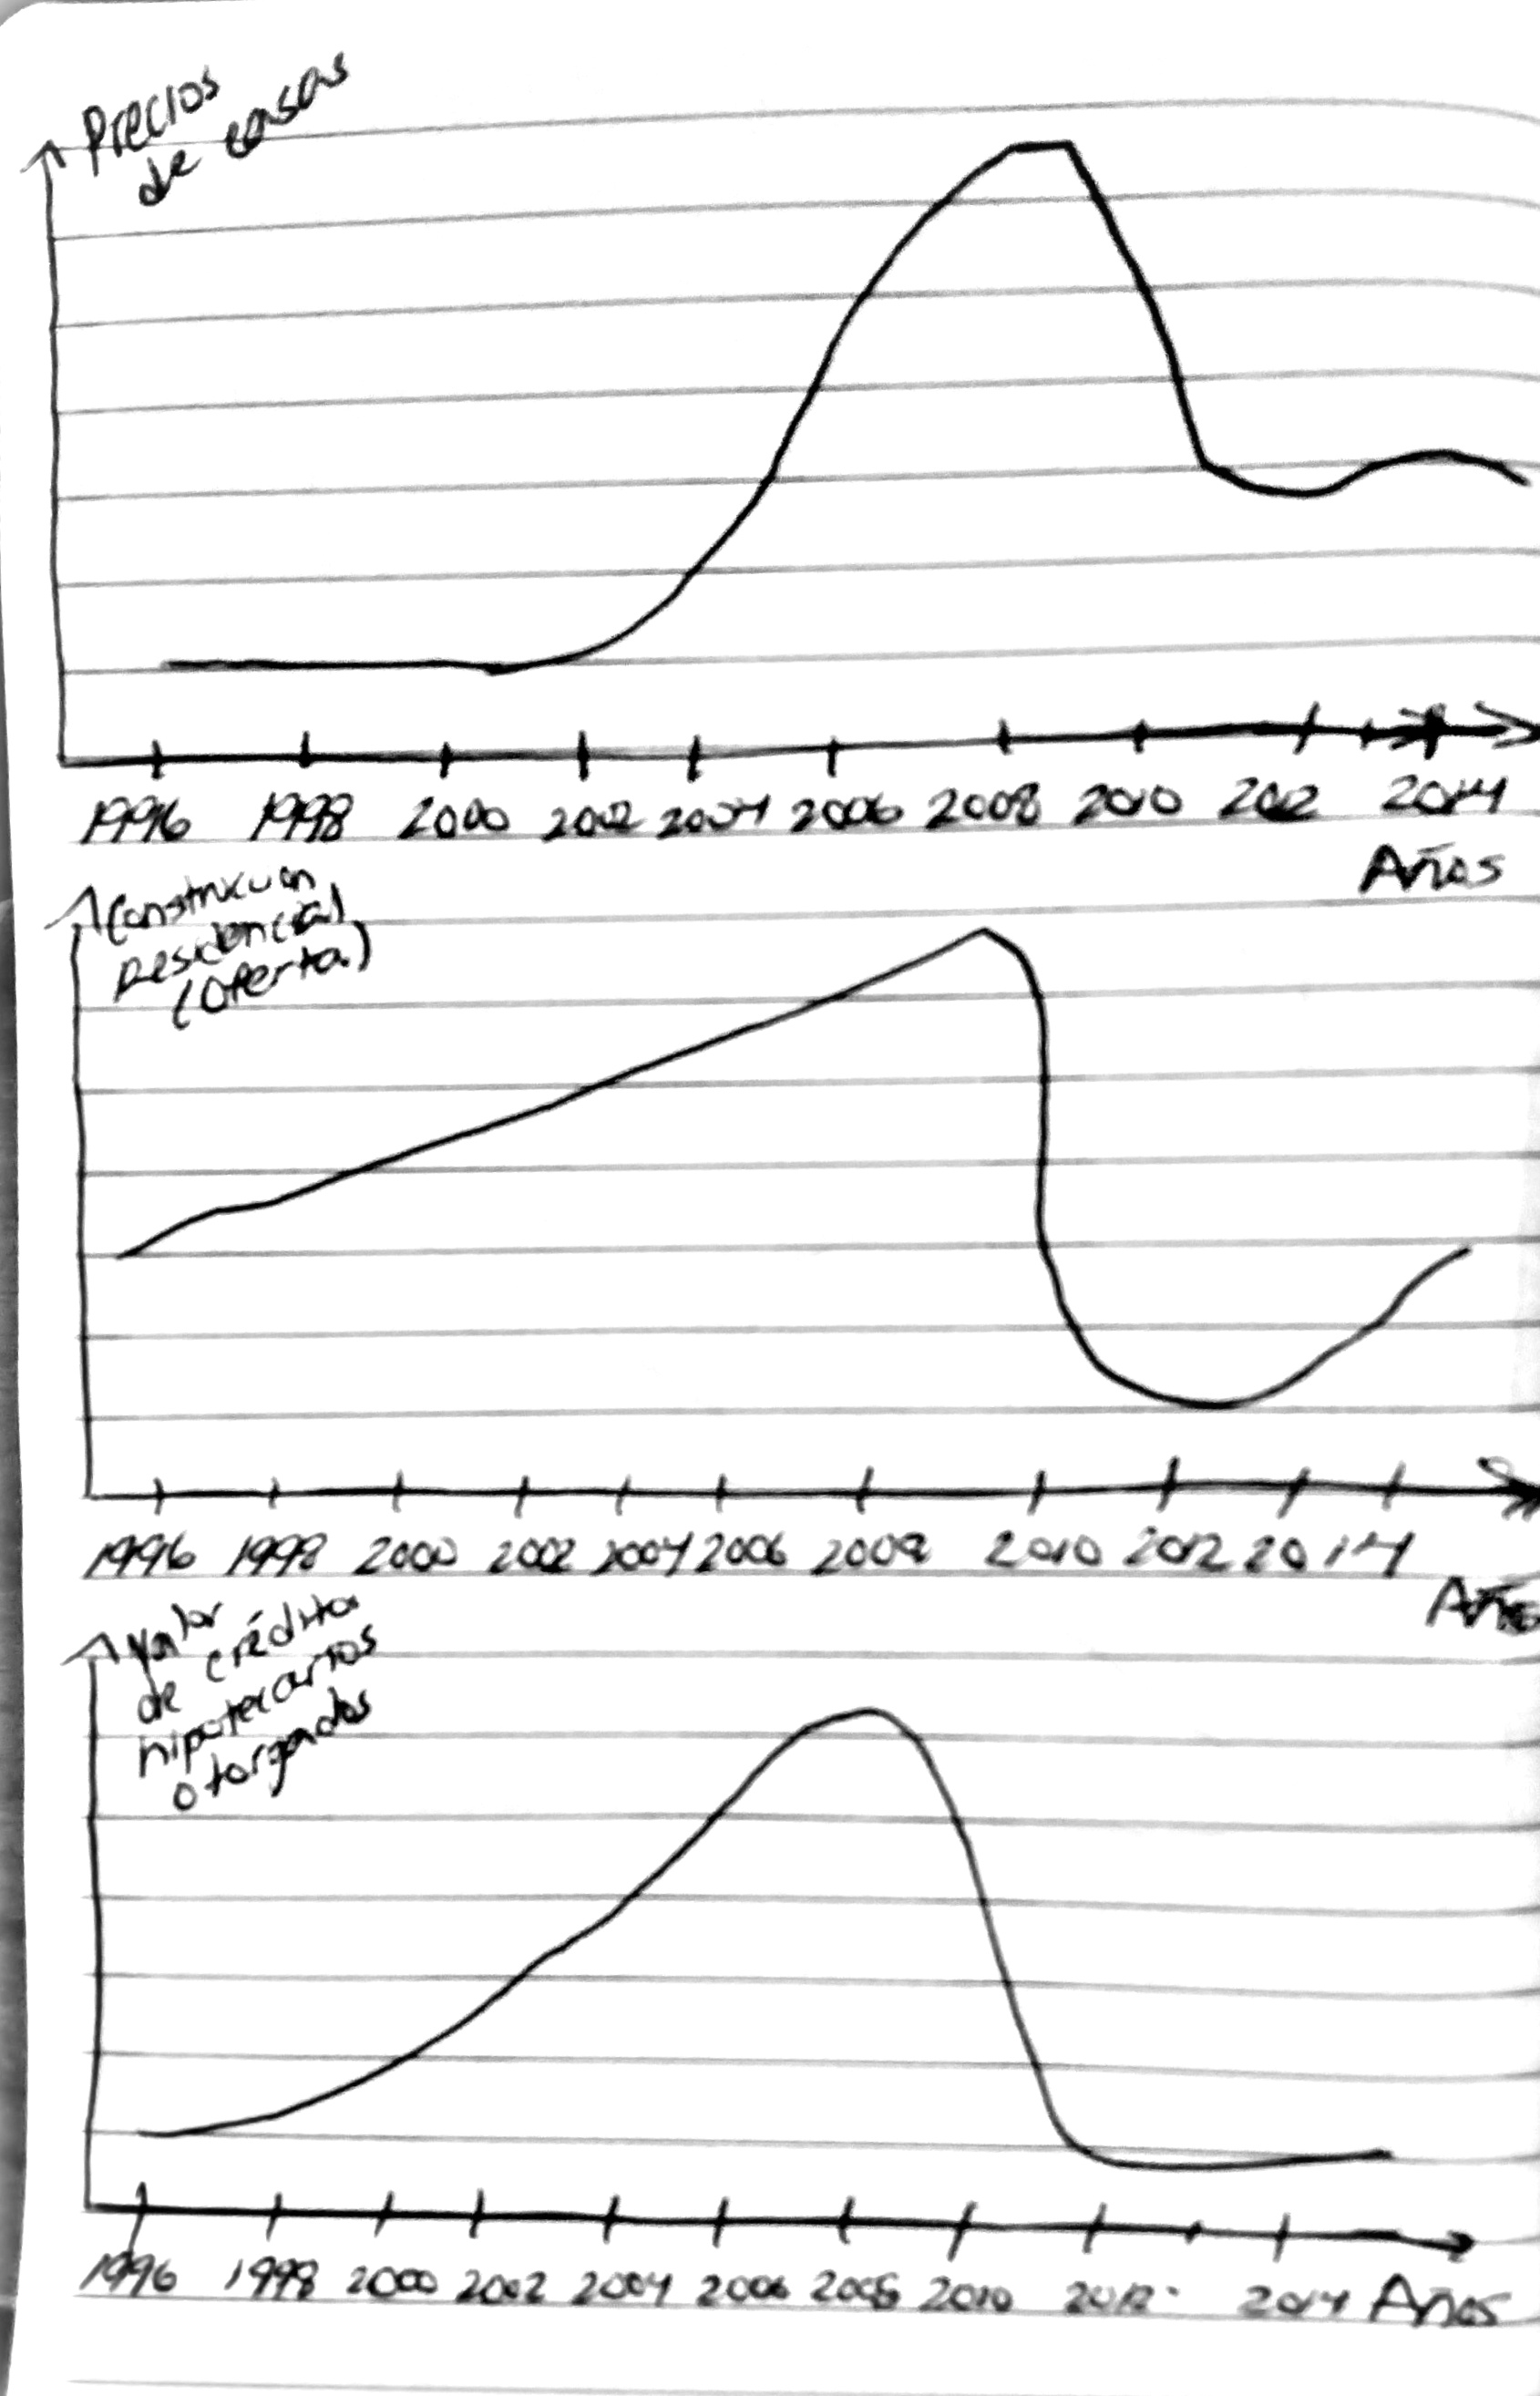 Precios
de casas
1996 1998 2000 2002 2004 2006 2008 2010 2012 2014
Años
Construcción
Residencial
(Oferta)
1996 1998 2000 2002 2004 2006 2008 2010 2012 2014
Años
Valor
de créditos
hipotecarios
otorgados
1996 1998 2000 2002 2004 2006 2008 2010 2012 2014 Años